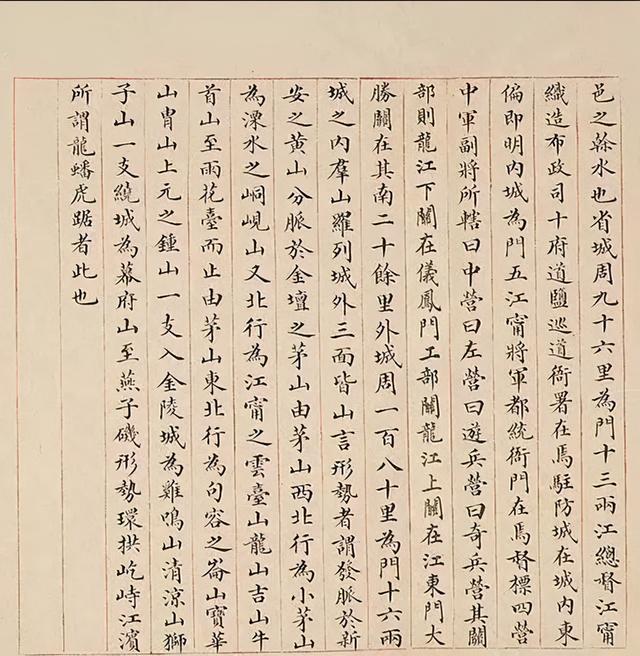 邑之榦水也省城周九十六里為門十三兩江總督江甯
織造布政司十府道鹽巡道衙署在焉駐防城在城內東
偏即明內城為門五江甯將軍都統衙門在焉督標四營
中軍副將所轄曰中營曰左營曰遊兵營曰奇兵營其關
部則龍江下關在儀鳳門工部關龍江上關在江東門大
勝關在其南二十餘里外城周一百八十里為門十六兩
城之內羣山羅列城外三面皆山言形勢者謂發脈於新
安之黃山分脈於金壇之茅山由茅山西北行為小茅山
為溧水之峒峴山又北行為江甯之雲臺山龍山吉山牛
首山至雨花臺而止由茅山東北行為句容之崙山寶華
山冑山上元之鍾山一支入金陵城為雞鳴山清涼山獅
子山一支繞城為幕府山至燕子磯形勢環拱屹峙江濱
所謂龍蟠虎踞者此也